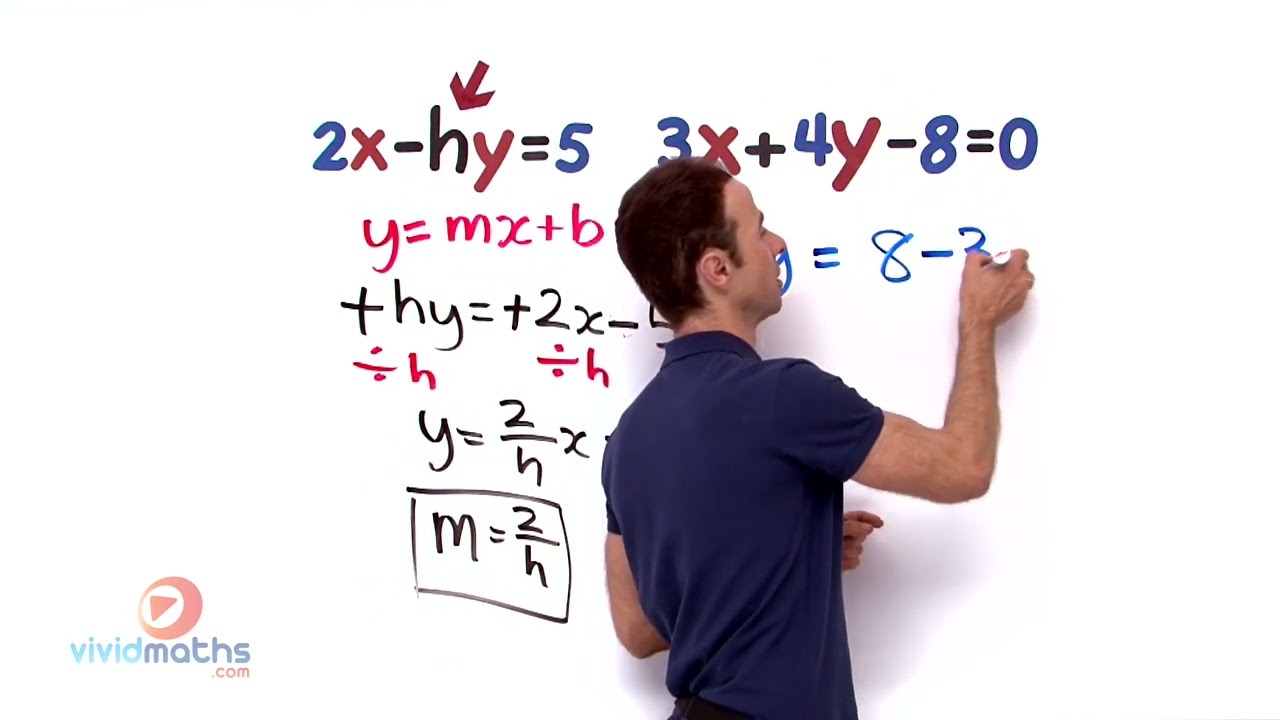 2x-hy=5
3x+4y-8=0
y=mx+b
y = 8-3
+hy=+2x-
÷h ÷h
y=2/h x
m=2/h
vividmaths
.com